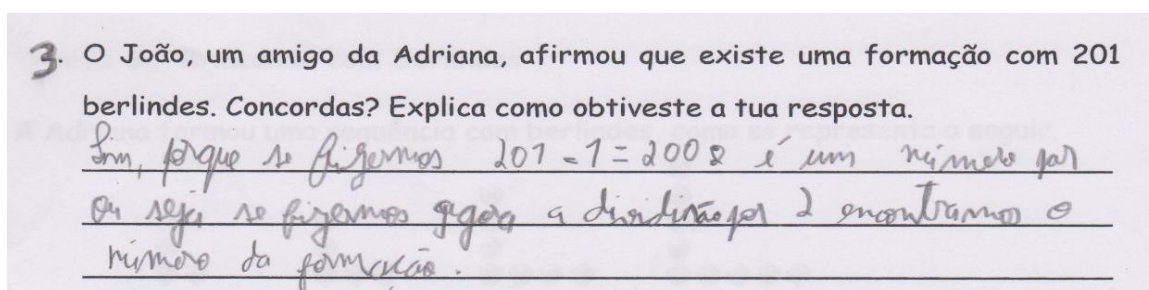 3. O João, um amigo da Adriana, afirmou que existe uma formação com 201
berlindes. Concordas? Explica como obtiveste a tua resposta.
Sim, porque se fizermos 201 - 1 = 200 e é um número par
ou seja se fizermos agora a dividisão por 2 encontramos o
número da formação.